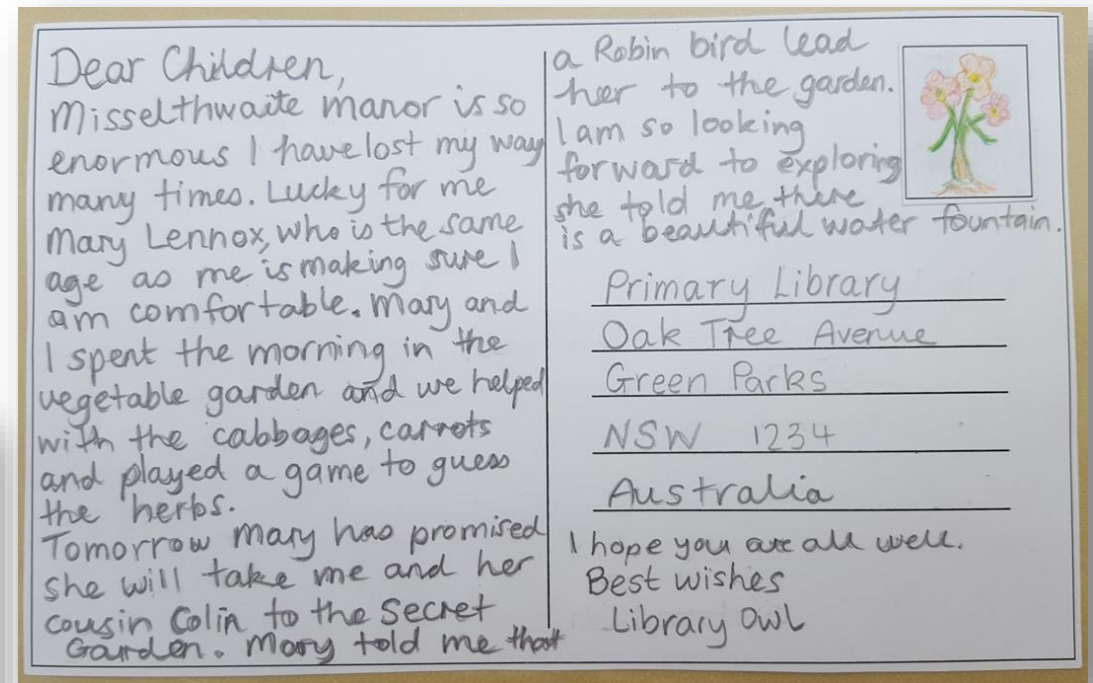 Dear Children,
Misselthwaite Manor is so
enormous I have lost my way
many times. Lucky for me
Mary Lennox, who is the same
age as me is making sure I
am comfortable. Mary and
I spent the morning in the
vegetable garden and we helped
with the cabbages, carrots
and played a game to guess
the herbs.
Tomorrow Mary has promised
she will take me and her
cousin Colin to the Secret
Garden. Mary told me that
a Robin bird lead
her to the garden.
I am so looking
forward to exploring
she told me there
is a beautiful water fountain.
Primary Library
Oak Tree Avenue
Green Parks
NSW 1234
Australia
I hope you are all well.
Best wishes
Library Owl